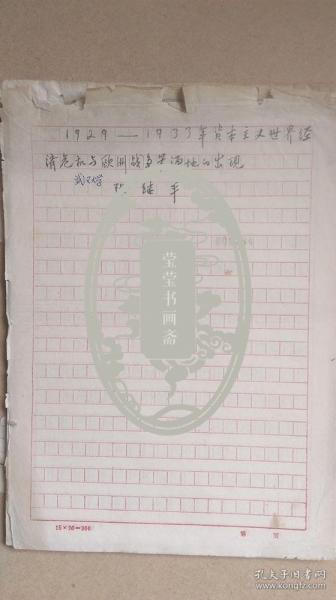 1929—1933年资本主义世界经
济危机与欧洲战争策源地的出现
武汉大学
继平
莹莹书画斋
15×20=300
第 页
孔夫子旧书网